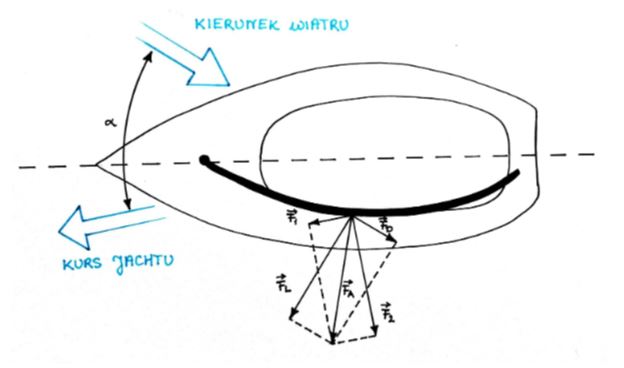 KIERUNEK WIATRU
α
KURS JACHTU
F₁
F_D
F_L
F_A
F₂